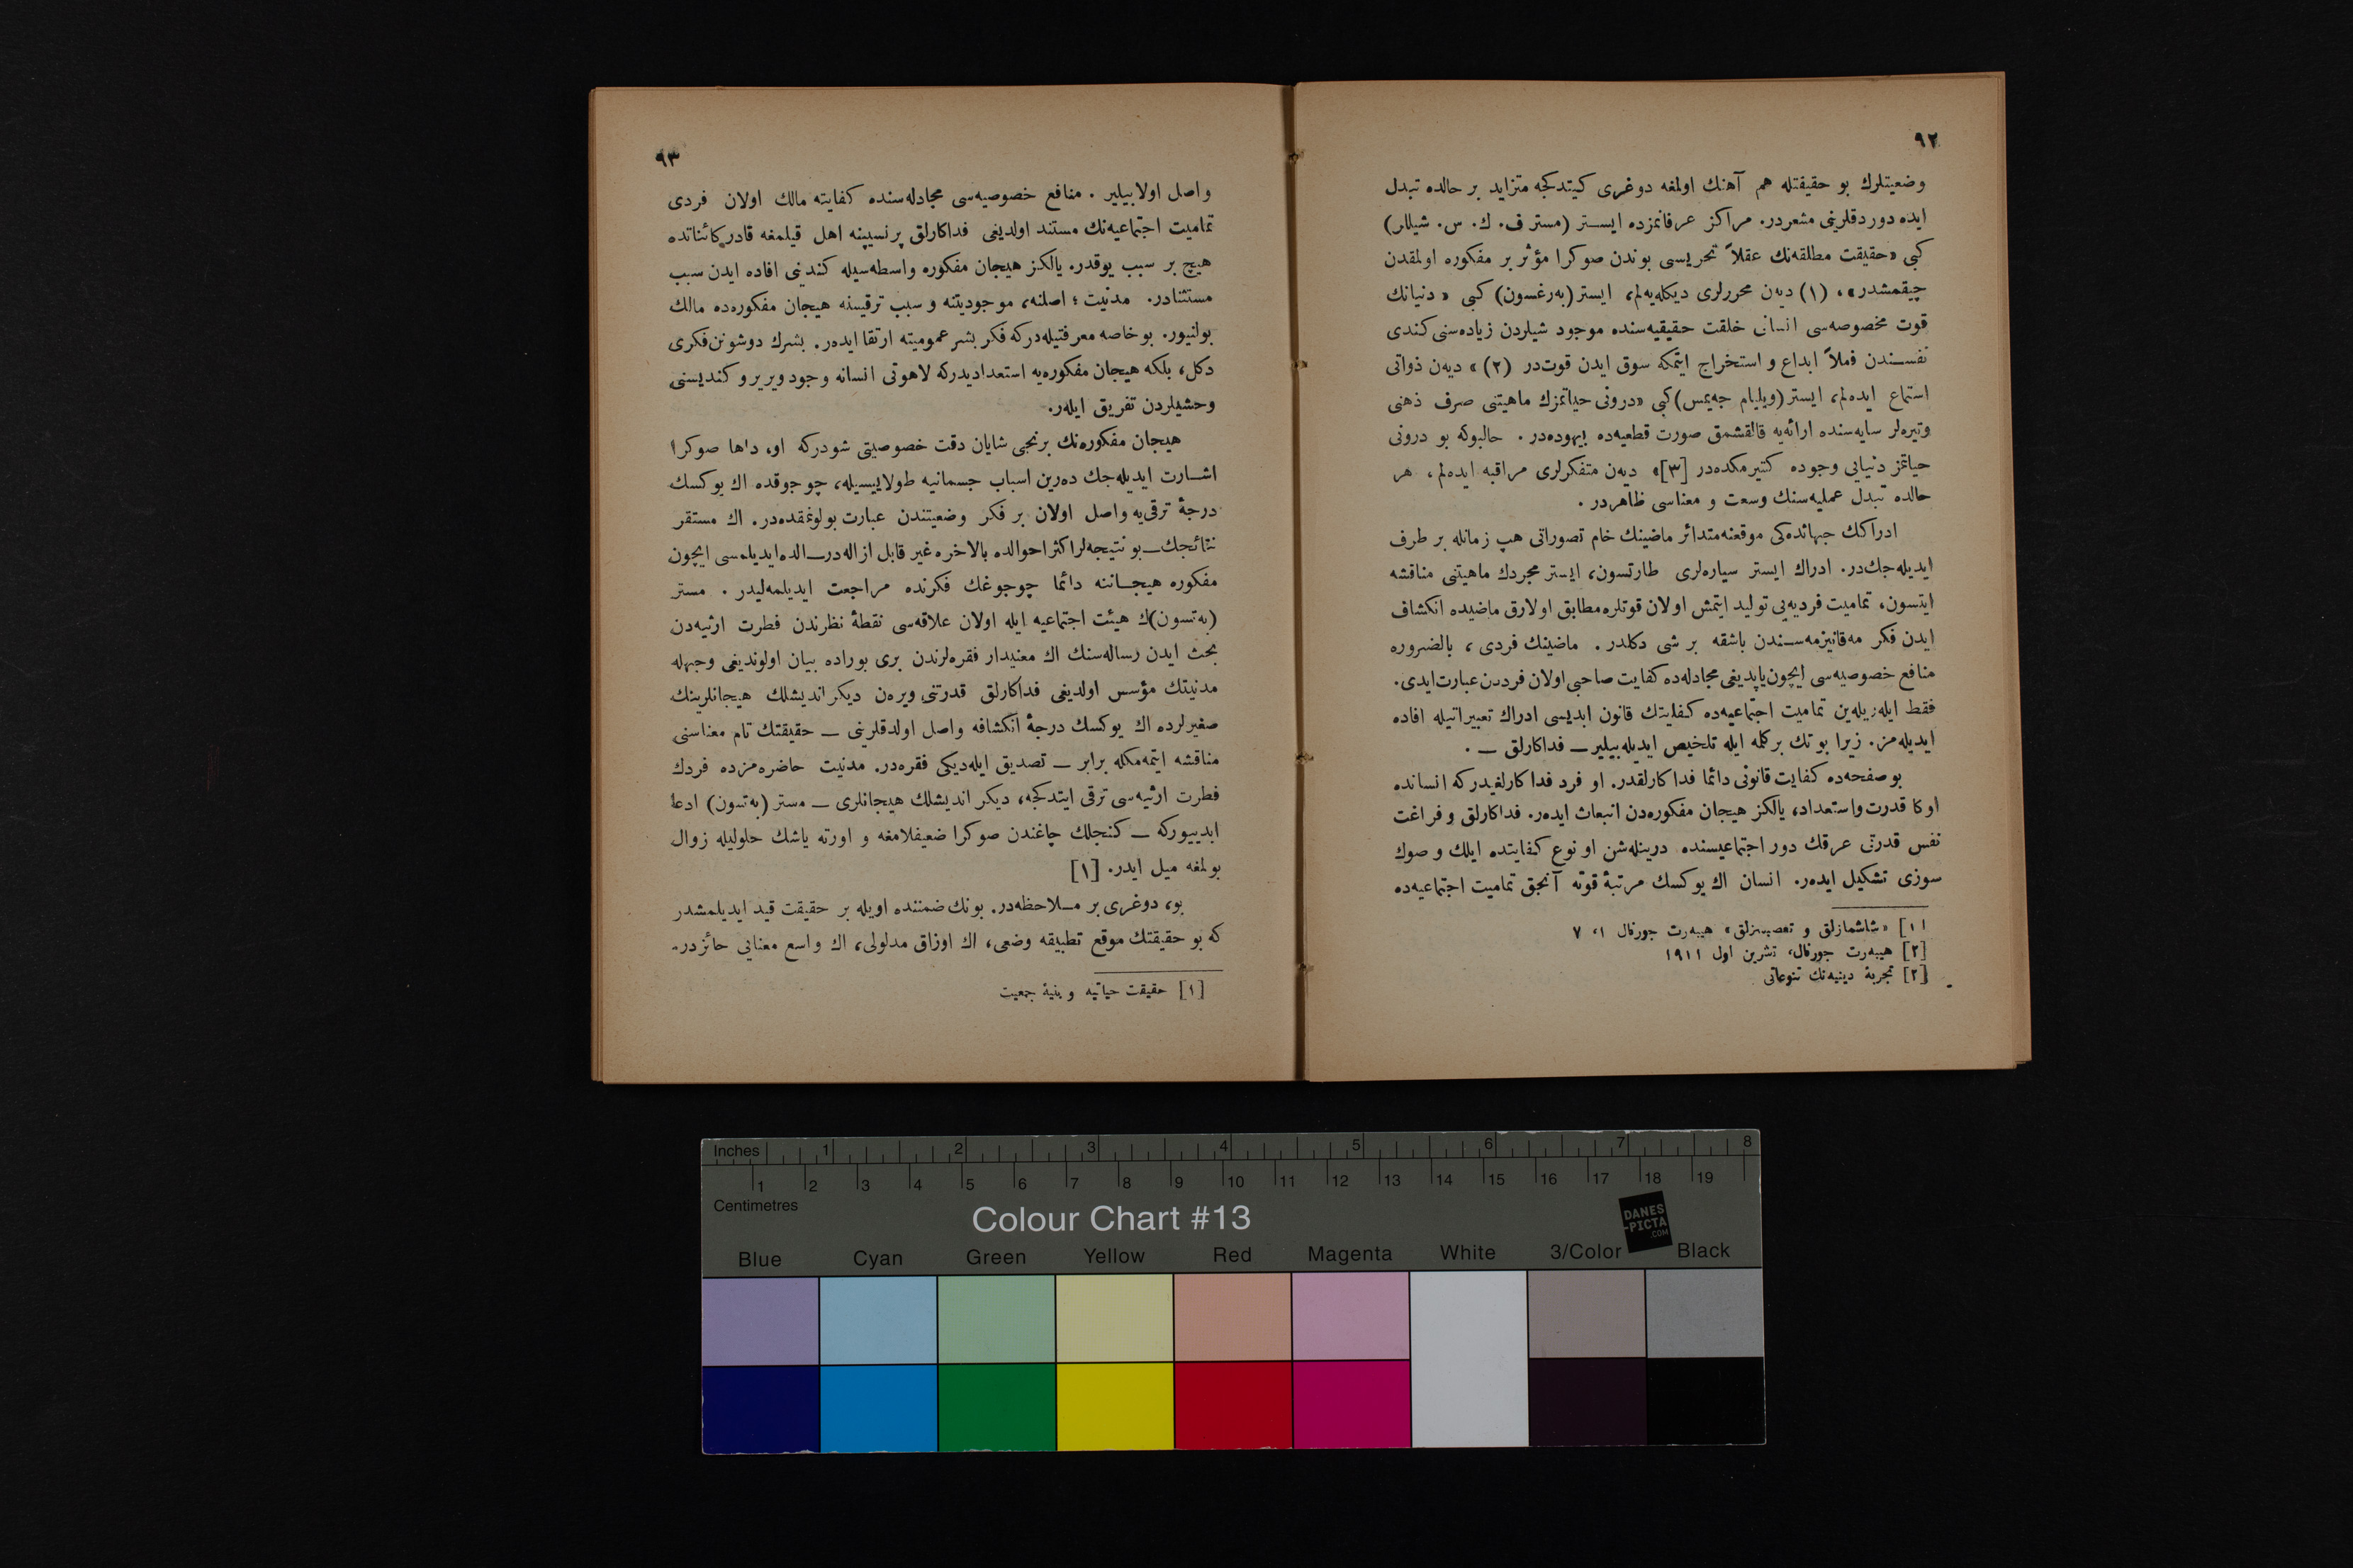 ٩٢
وضعيتلرك بو حقيقتله هم آهنك اولمغه دوغرى كيتدكجه متزايد بر حالده تبدل
ايده دوردقلرينى مشعردر. مراكز عرفانمزده ايستر (مستر ف. ك. س. شيللر)
كبى «حقيقت مطلقه‌نك عقلاً تحريسى بوندن صوكرا مؤثر بر مفكوره اولمقدن
چيقمشدر»، (١) ديه‌ن محررلرى ديكله‌يه‌لم، ايستر (به‌رغسون) كبى «دنيانك
قوت مخصوصه‌سى انسانى خلقت حقيقيه‌سنده موجود شيلردن زياده‌سنى كندى
نفسندن فعلاً ابداع و استخراج ايتمكه سوق ايدن قوت‌در (٢)» ديه‌ن ذواتى
استماع ايده‌لم، ايستر (ويليام جه‌يمس) كبى «درونى حياتمزك ماهيتنى صرف ذهنى
وتيره‌لر سايه‌سنده ارائه‌يه قالقشمق صورت قطعيه‌ده بيهوده‌در. حالبوكه بو درونى
حياتمز دنيايى وجوده كتيرمكده‌در [٣]» ديه‌ن متفكرلرى مراقبه ايده‌لم، هر
حالده تبدل عمليه‌سنك وسعت و معناسى ظاهردر.
ادراكك جهانده‌كى موقعنه متدائر ماضينك خام تصوراتى هپ زمانله بر طرف
ايديله‌جك‌در. ادراك ايستر سياره‌لرى طارتسون، ايستر مجردك ماهيتنى مناقشه
ايتسون، تماميت فرديه‌يى توليد ايتمش اولان قوتلره مطابق اولارق ماضيده انكشاف
ايدن فكر مه‌قانيزمه‌سندن باشقه بر شى دكلدر. ماضينك فردى، بالضروره
منافع خصوصيه‌سى ايچون ياپديغى مجادله‌ده كفايت صاحبى اولان فرددن عبارت ايدى.
فقط ايلريله‌ين تماميت اجتماعيه‌ده كفايتك قانون ابديسى ادراك تعبيراتيله افاده
ايديله‌مز. زيرا بو تك بر كلمه ايله تلخيص ايديله‌بيلير ــ فداكارلق ــ .
بو صفحه‌ده كفايت قانونى دائما فداكارلقدر. او فرد فداكارلغيدركه انسانده
اوكا قدرت و استعداد، يالكز هيجان مفكوره‌دن انبعاث ايده‌ر. فداكارلق و فراغت
نفس قدرتى عرقك دور اجتماعيسنده درينله‌شن او نوع كفايتده ايلك و صوك
سوزى تشكيل ايده‌ر. انسان اك يوكسك مرتبهٔ قوته آنجق تماميت اجتماعيه‌ده
[١] «شاشمازلق و تعصبسزلق» هيبه‌رت جورنال ١، ٧
[٢] هيبه‌رت جورنال، تشرين اول ١٩١١
[٢] تجربهٔ دينيه‌نك تنوعاتى
٩٣
واصل اولابيلير. منافع خصوصيه‌سى مجادله‌سنده كفايته مالك اولان فردى
تماميت اجتماعيه‌نك مستند اولديغى فداكارلق پرنسيپنه اهل قيلمغه قادر كائناتده
هيچ بر سبب يوقدر. يالكز هيجان مفكوره واسطه‌سيله كندنى افاده ايدن سبب
مستثنادر. مدنيت؛ اصلنه، موجوديتنه و سبب ترقيسنه هيجان مفكوره‌ده مالك
بولنيور. بو خاصه معرفتيله‌دركه فكر بشر عموميته ارتقا ايده‌ر. بشرك دوشونن فكرى
دكل، بلكه هيجان مفكوره‌يه استعداديدركه لاهوتى انسانه وجود ويرير و كنديسنى
وحشيلردن تفريق ايلر.
هيجان مفكوره‌نك برنجى شايان دقت خصوصيتى شودركه او، داها صوكرا
اشارت ايديله‌جك ده‌رين اسباب جسمانيه طولاييسيله، چوجوقده اك يوكسك
درجهٔ ترقى‌يه واصل اولان بر فكر وضعيتندن عبارت بولونمقده‌در. اك مستقر
نتائجك ــ بو نتيجه‌لر اكثر احوالده بالاخره غير قابل ازاله‌در ــ الده ايديلمسى ايچون
مفكوره هيجاننه دائما چوجوغك فكرنده مراجعت ايديلمه‌ليدر. مستر
(به‌تسون)ك هيئت اجتماعيه ايله اولان علاقه‌سى نقطهٔ نظرندن فطرت ارثيه‌دن
بحث ايدن رساله‌سنك اك معنيدار فقره‌لرندن برى بوراده بيان اولونديغى وجهله
مدنيتك مؤسس اولديغى فداكارلق قدرتنى ويره‌ن ديكر انديشلك هيجانلرينك
صغيرلرده اك يوكسك درجهٔ انكشافه واصل اولدقلرينى ــ حقيقتك تام معناسنى
مناقشه ايتمه‌مكله برابر ــ تصديق ايله‌ديكى فقره‌در. مدنيت حاضره‌مزده فردك
فطرت ارثيه‌سى ترقى ايتدكجه، ديكر انديشلك هيجانلرى ــ مستر (به‌تسون) ادعا
ايدييوركه ــ كنجلك چاغندن صوكرا ضعيفلامغه و اورته ياشك حلوليله زوال
بولمغه ميل ايدر. [١]
بو، دوغرى بر ملاحظه‌در. بونك ضمننده اويله بر حقيقت قيد ايديلمشدر
كه بو حقيقتك موقع تطبيقه وضعى، اك اوزاق مدلولى، اك واسع معنايى حائزدر.
[١] حقيقت حياتيه و بنيهٔ جمعيت
Inches 1 2 3 4 5 6 7 8
1 2 3 4 5 6 7 8 9 10 11 12 13 14 15 16 17 18 19
Centimetres
Colour Chart #13
DANES
-PICTA
.COM
Blue Cyan Green Yellow Red Magenta White 3/Color Black